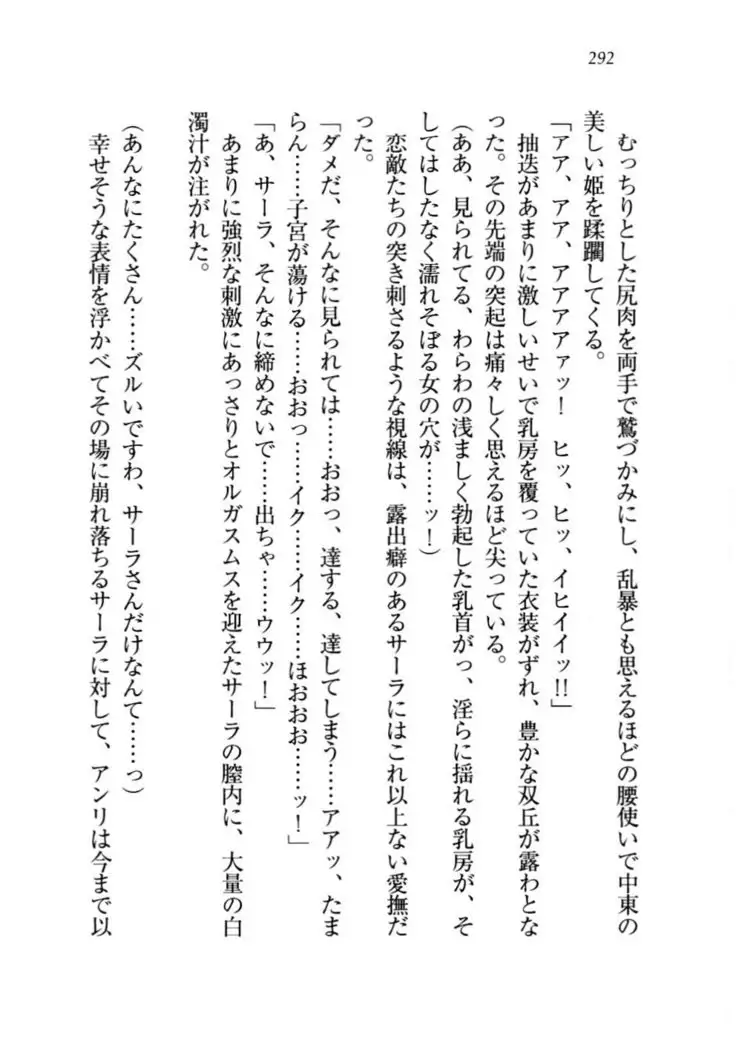 292
むっちりとした尻肉を両手で鷲づかみにし、乱暴とも思えるほどの腰使いで中東の
美しい姫を蹂躙してくる。
「アア、アア、アアアアァッ！　ヒッ、ヒッ、イヒイイッ!!」
抽迭があまりに激しいせいで乳房を覆っていた衣装がずれ、豊かな双丘が露わとな
った。その先端の突起は痛々しく思えるほど尖っている。
（ああ、見られてる、わらわの浅ましく勃起した乳首がっ、淫らに揺れる乳房が、そ
してはしたなく濡れそぼる女の穴が……ッ！）
恋敵たちの突き刺さるような視線は、露出癖のあるサーラにはこれ以上ない愛撫だ
った。
「ダメだ、そんなに見られては……おおっ、達する、達してしまう……アアッ、たま
らん……子宮が蕩ける……おおっ……イク……イク……ほおおお……ッ！」
「あ、サーラ、そんなに締めないで……出ちゃ……ウウッ！」
あまりに強烈な刺激にあっさりとオルガスムスを迎えたサーラの膣内に、大量の白
濁汁が注がれた。
（あんなにたくさん……ズルいですわ、サーラさんだけなんて……っ）
幸せそうな表情を浮かべてその場に崩れ落ちるサーラに対して、アンリは今まで以